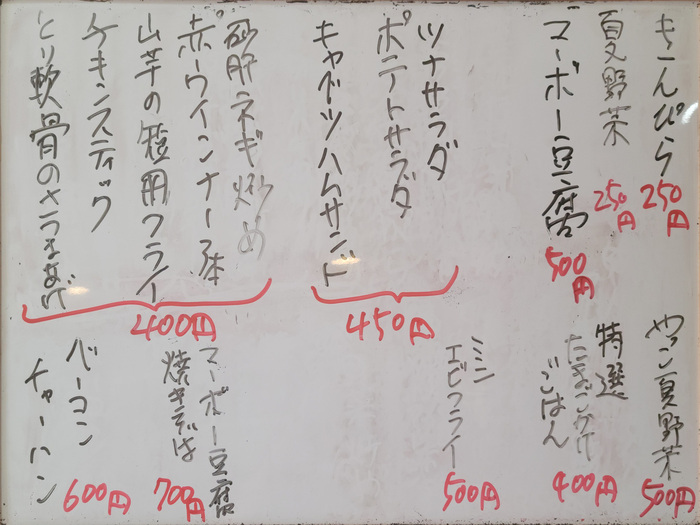 きんぴら
250円
夏野菜
250円
マーボー豆腐
500円
ツナサラダ
ポテトサラダ
キャベツハムサンド
450円
砂肝ネギ炒め
赤ウインナー3本
山芋の磯用フライ
チキンスティック
とり軟骨のカラあげ
400円
やっこ夏野菜
500円
特選
たまごかけ
ごはん
400円
ミニ
エビフライ
500円
マーボー豆腐
焼きそば
700円
ベーコン
チャーハン
600円